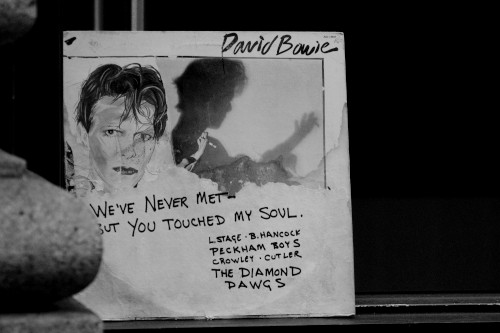 David Bowie
WE'VE NEVER MET-
BUT YOU TOUCHED MY SOUL.
L.STAGE · B.HANCOCK
PECKHAM BOYS
CROWLEY · CUTLER
THE DIAMOND
DAWGS